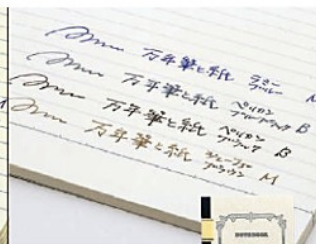 万年筆と紙 ラミー ブルー M
万年筆と紙 ペリカン ブルーブラック B
万年筆と紙 ペリカン ブラック B
万年筆と紙 ブラウン M
NOTEBOOK